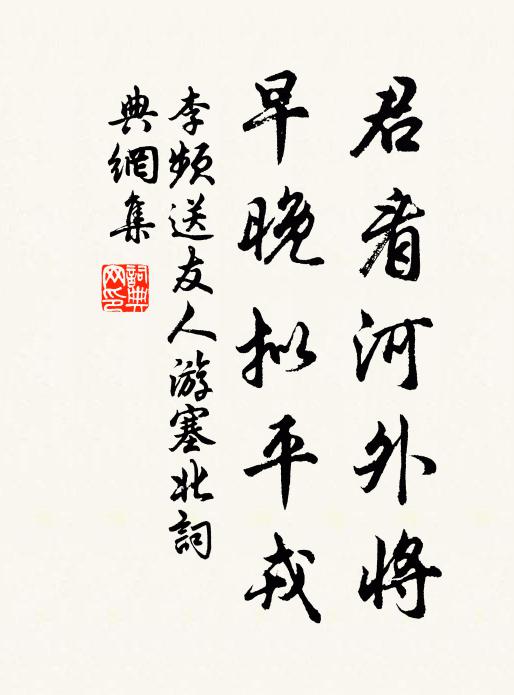 君看河外將
早晚拟平戎
李頻送友人游塞北詞
典網集
詞典網印